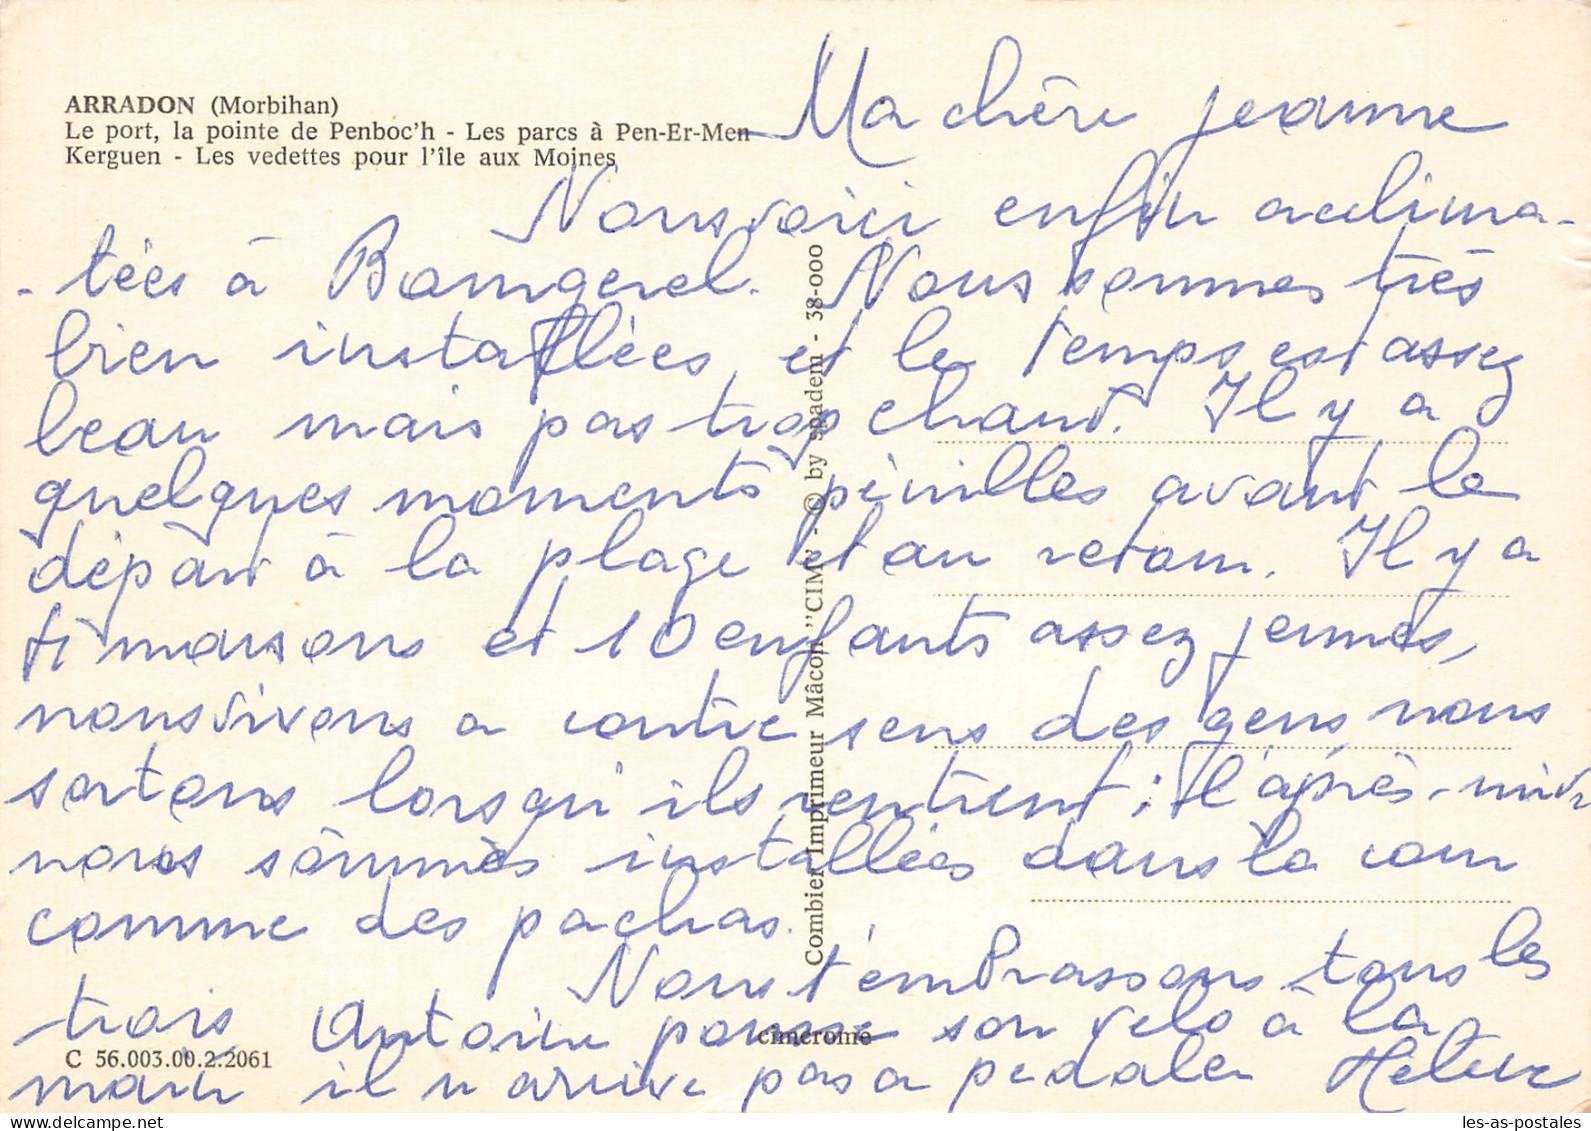 ARRADON (Morbihan)
Le port, la pointe de Penboc'h - Les parcs à Pen-Er-Men
Kerguen - Les vedettes pour l'île aux Moines
Ma chère Jeanne
Nous voici enfin aclima-
-tées à Bomgerel. Nous sommes très
bien installées et le temps est assez
beau mais pas trop chaud. Il y a
quelques moments pénibles avant le
départ à la plage et au retour. Il y a
maisons et 10 enfants assez jeunes,
nous vivons a contre sens des gens, nous
sortons lorsqu'ils rentrent ; l'après-midi
nous sommes installées dans la cour
comme des pachas.
Nous t'embrassons tous les
trois, Antoine pousse son velo à la
main il n'arrive pas a pedaler Hélène
Combier Imprimeur Mâcon "CIM" - © by spadem - 38-000
cimcrome
C 56.003.00.2.2061
les-as-postales